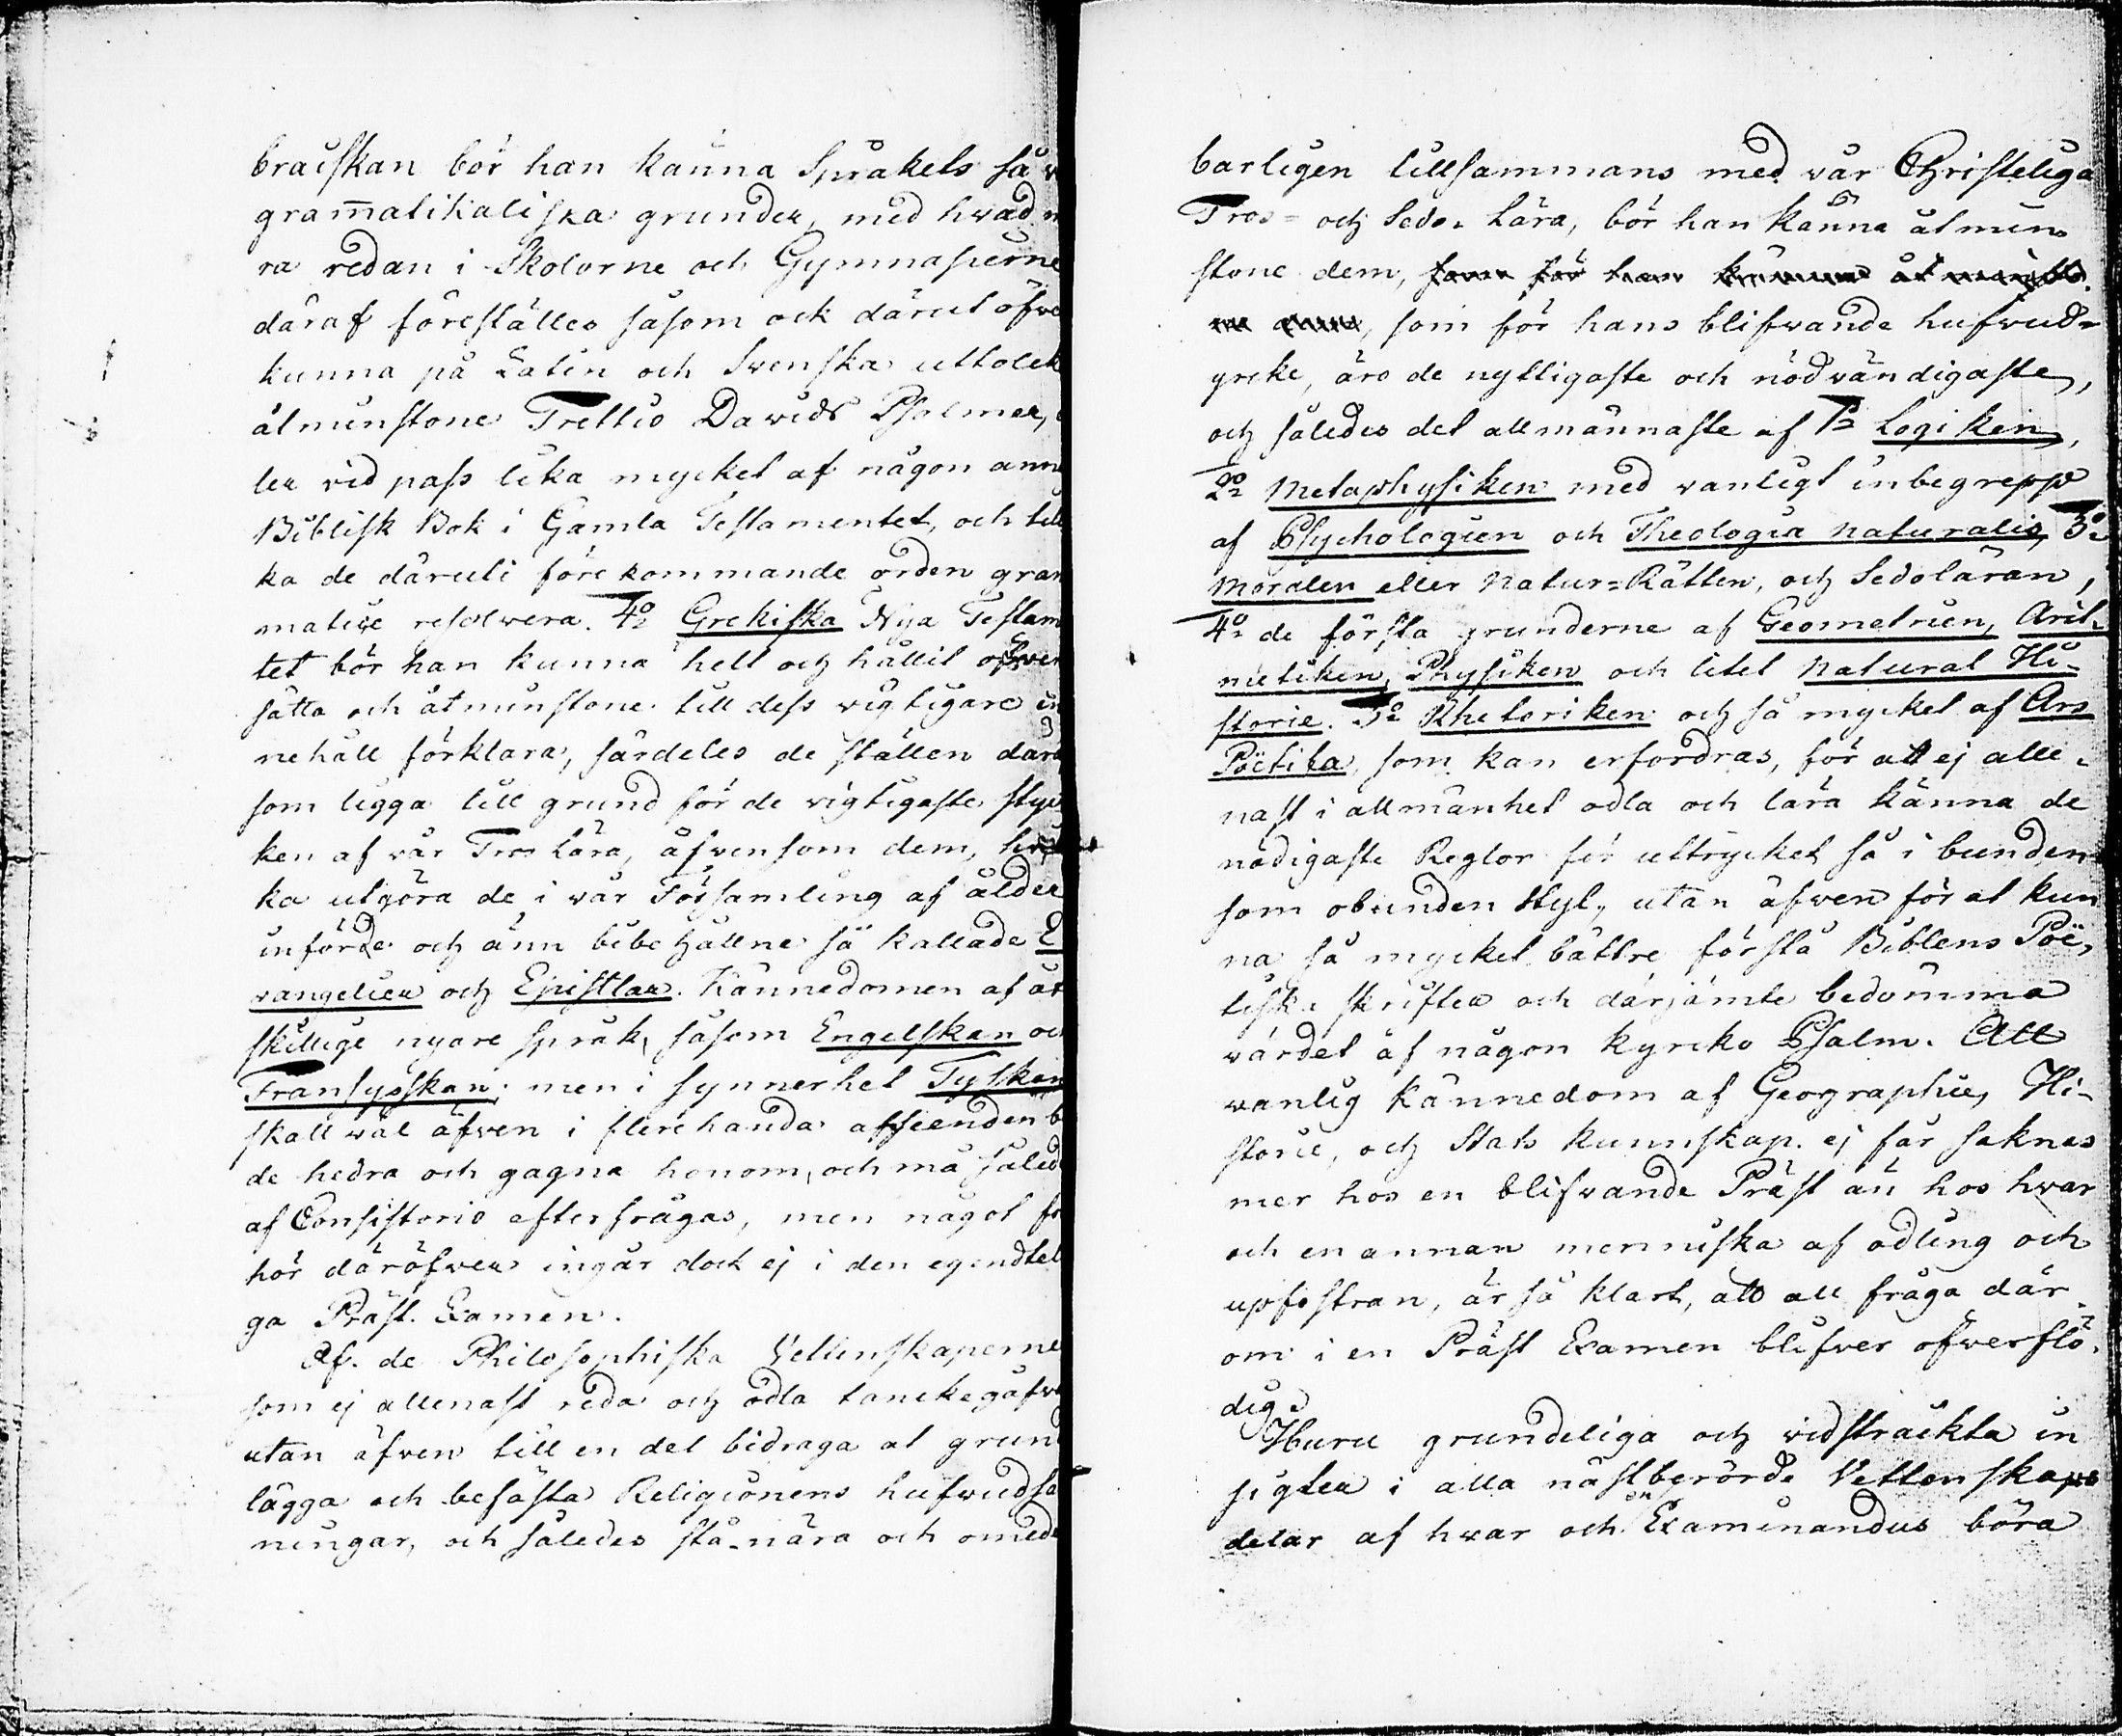 braiskan bör han känna Språkets så v
gram̄atikaliska grunder, med hvad m
ra redan i Skolorne och Gymnasierne
däraf föreställes såsom ock därutöfve
kunna på Latin och Svenska uttolck
åtminstone Trettio Davids Psalmer,
ler vid pass lika mycket af någon ann
Biblisk Bok i Gamla Testamentet, och till
ka de däruti förekommande orden gram
matice resolvera. 4o Grekiska Nya Testam
tet bör han kunna helt och hållit öfver
sätta och åtminstone till dess vigtigare in
nehåll förklara, särdeles de ställen dära
som ligga till grund för de vigtigaste styc
ken af vår Tros Lära, äfvensom dem, hvil
ka utgöra de i vår Församling af ålder
införde och änn bibehållne så kallade E
vangelier och Epistlar. Kännedomen af åt
skillige nyare språk, såsom Engelskan oc
Fransysskan, men i synnerhet Tyskan
skall väl äfven i flerehanda afseenden b
de hedra och gagna honom, och må således
af Consistorio efterfrågas, men något för
hör däröfver ingår dock ej i den egendtel
ga Präst. Examen.
Af de Philosophiska Vettenskaperne
som ej allenast reda och odla tanckegåfva
utan äfven till en del bidraga at grund
lägga och befästa Religionens hufvudsa
ningar, och således stå nära och omedel
barligen tillsammans med vår Christeliga
Tros- och Sedo- Lära, bör han känna åtmin
stone dem, som för hans
, som för hans blifvande hufvud-
yrcke, äro de nyttigaste och nödvändigaste,
och således det allmännaste af 1o Logiken,
2o Metaphysiken med vanligt inbegrepp
af Psychologien och Theologia naturalis, 3o
Moralen eller Natur-Rätten, och Sedoläran,
4o de första grunderne af Geometrien, Arit-
metiken, Physiken och litet Natural Hi-
storie. 5o Rhetoriken och så mycket af Ars
Poëtica, som kan erfordras, för att ej alle-
nast i allmänhet odla och lära känna de
nödigaste Reglor för uttrycket så i bunden
som obunden Styl, utan äfven för at kun
na så mycket bättre förstå Biblens Poë-
tiske skrifter och därjämte bedömma
värdet af någon kyrcko Psalm. Att
vanlig kännedom af Geographie, Hi-
storie, och Stats kunnskap ej får saknas
mer hos en blifvande Präst än hos hvar
och en annan menniska af odling och
upfostran, är så klart, att all fråga där
om i en Präst Examen blifver öfverflö-
dig.
Huru grundeliga och vidsträckta in
sigter i alla nästberörde Vettenskaps
delar af hvar och en Examinandus böra